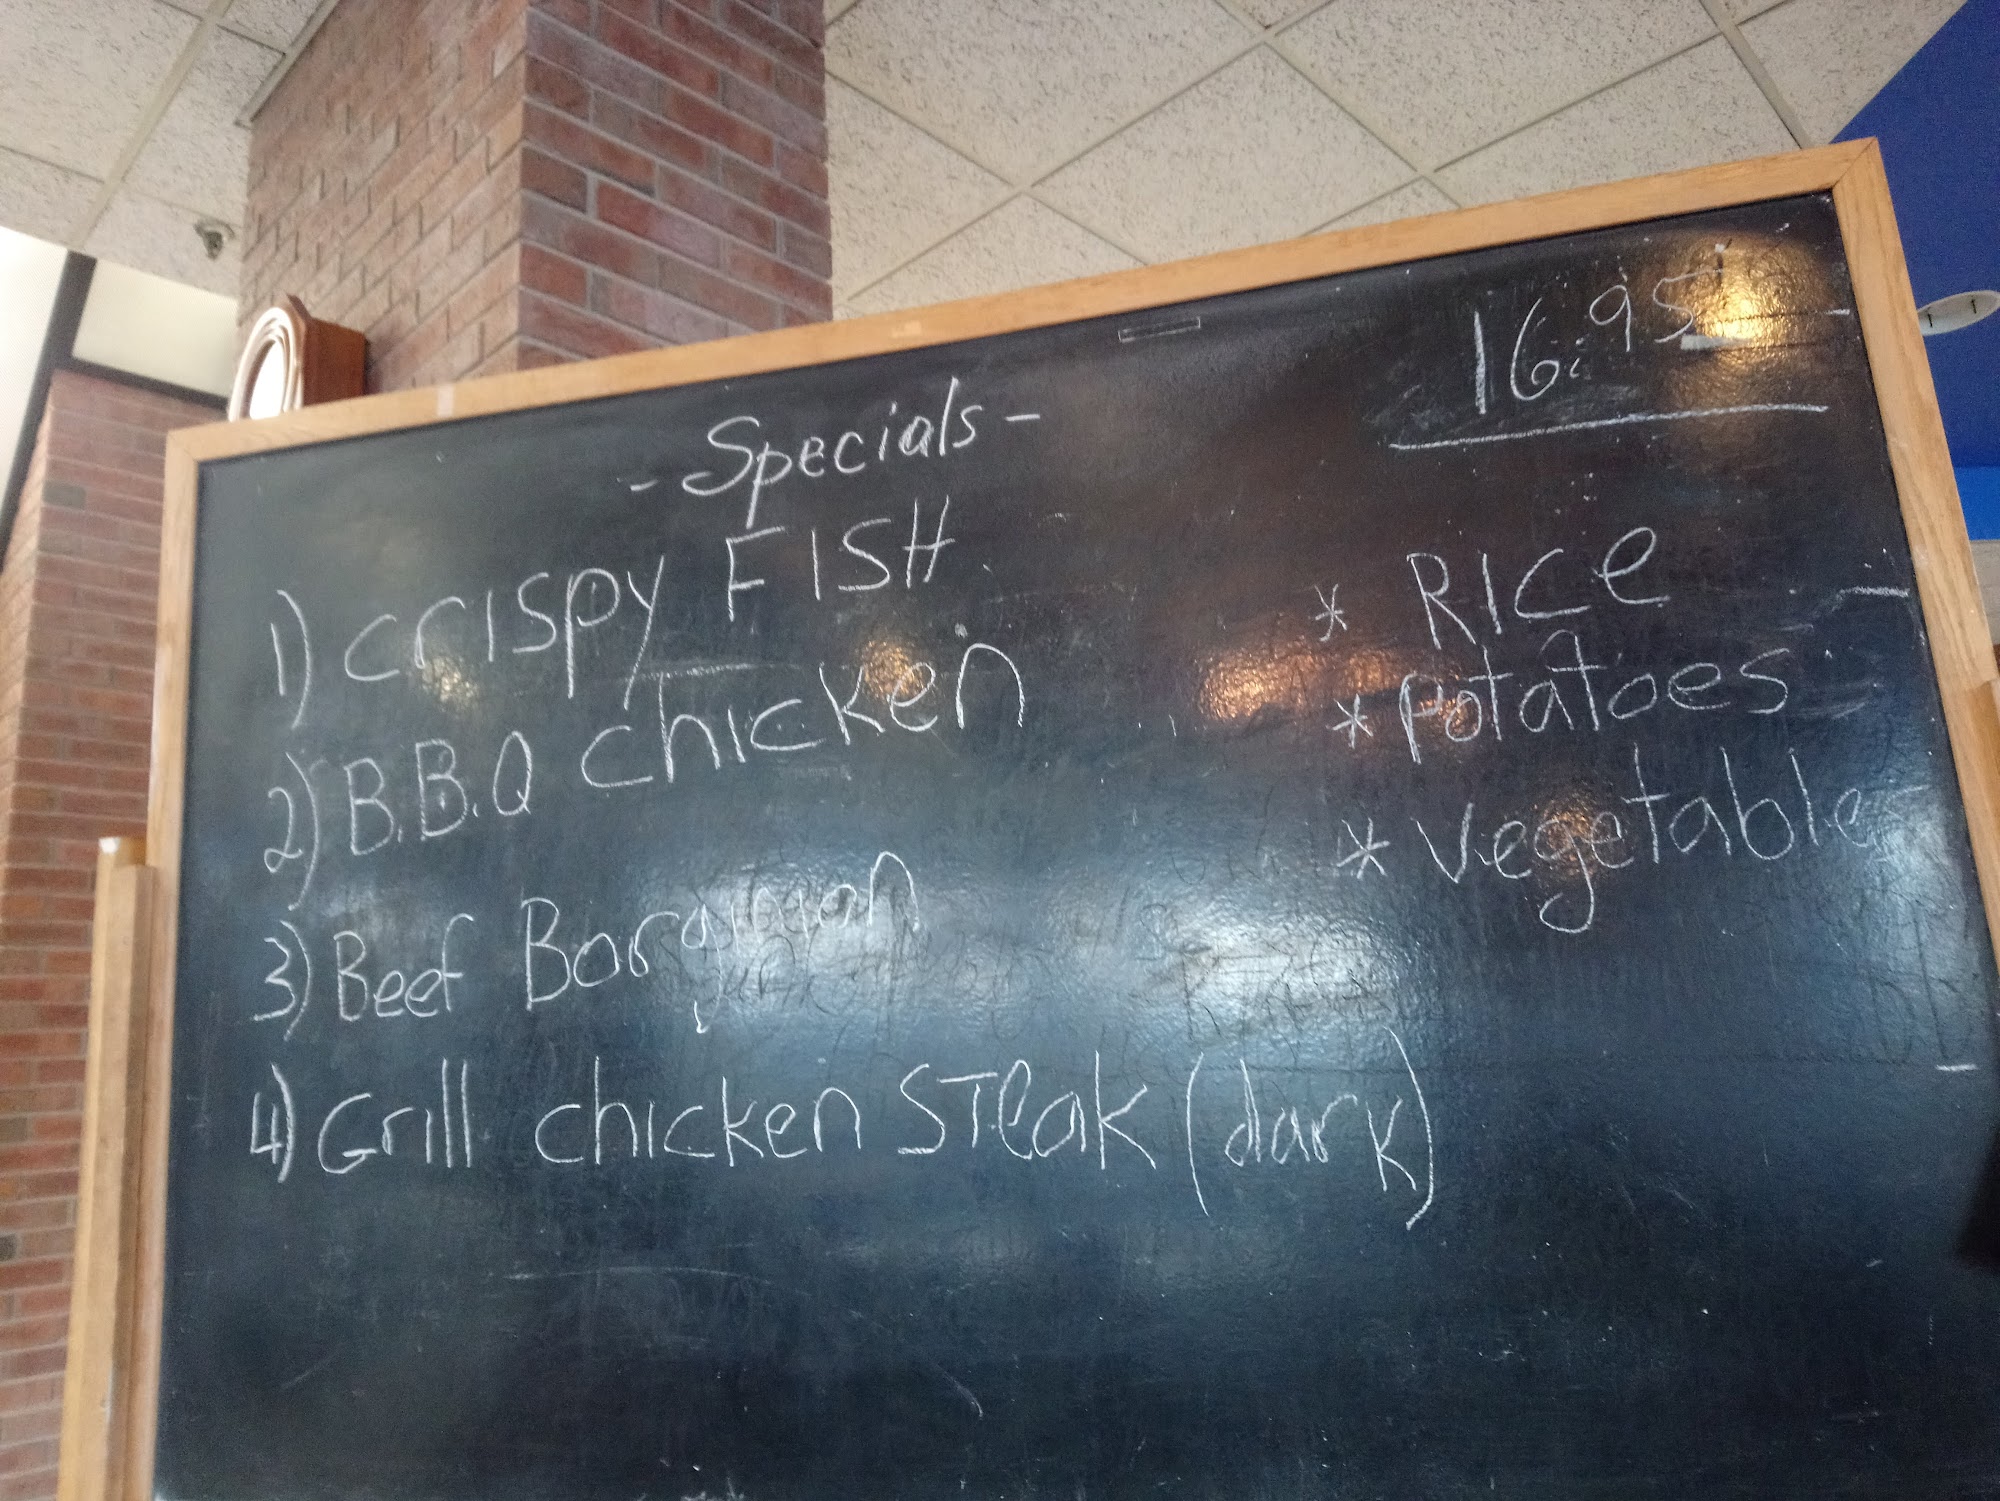 16.95
- Specials -
1) Crispy FISH
2) B.B.Q chicken
3) Beef Borginion
4) Grill chicken Steak (dark)
* Rice
* Potatoes
* Vegetables